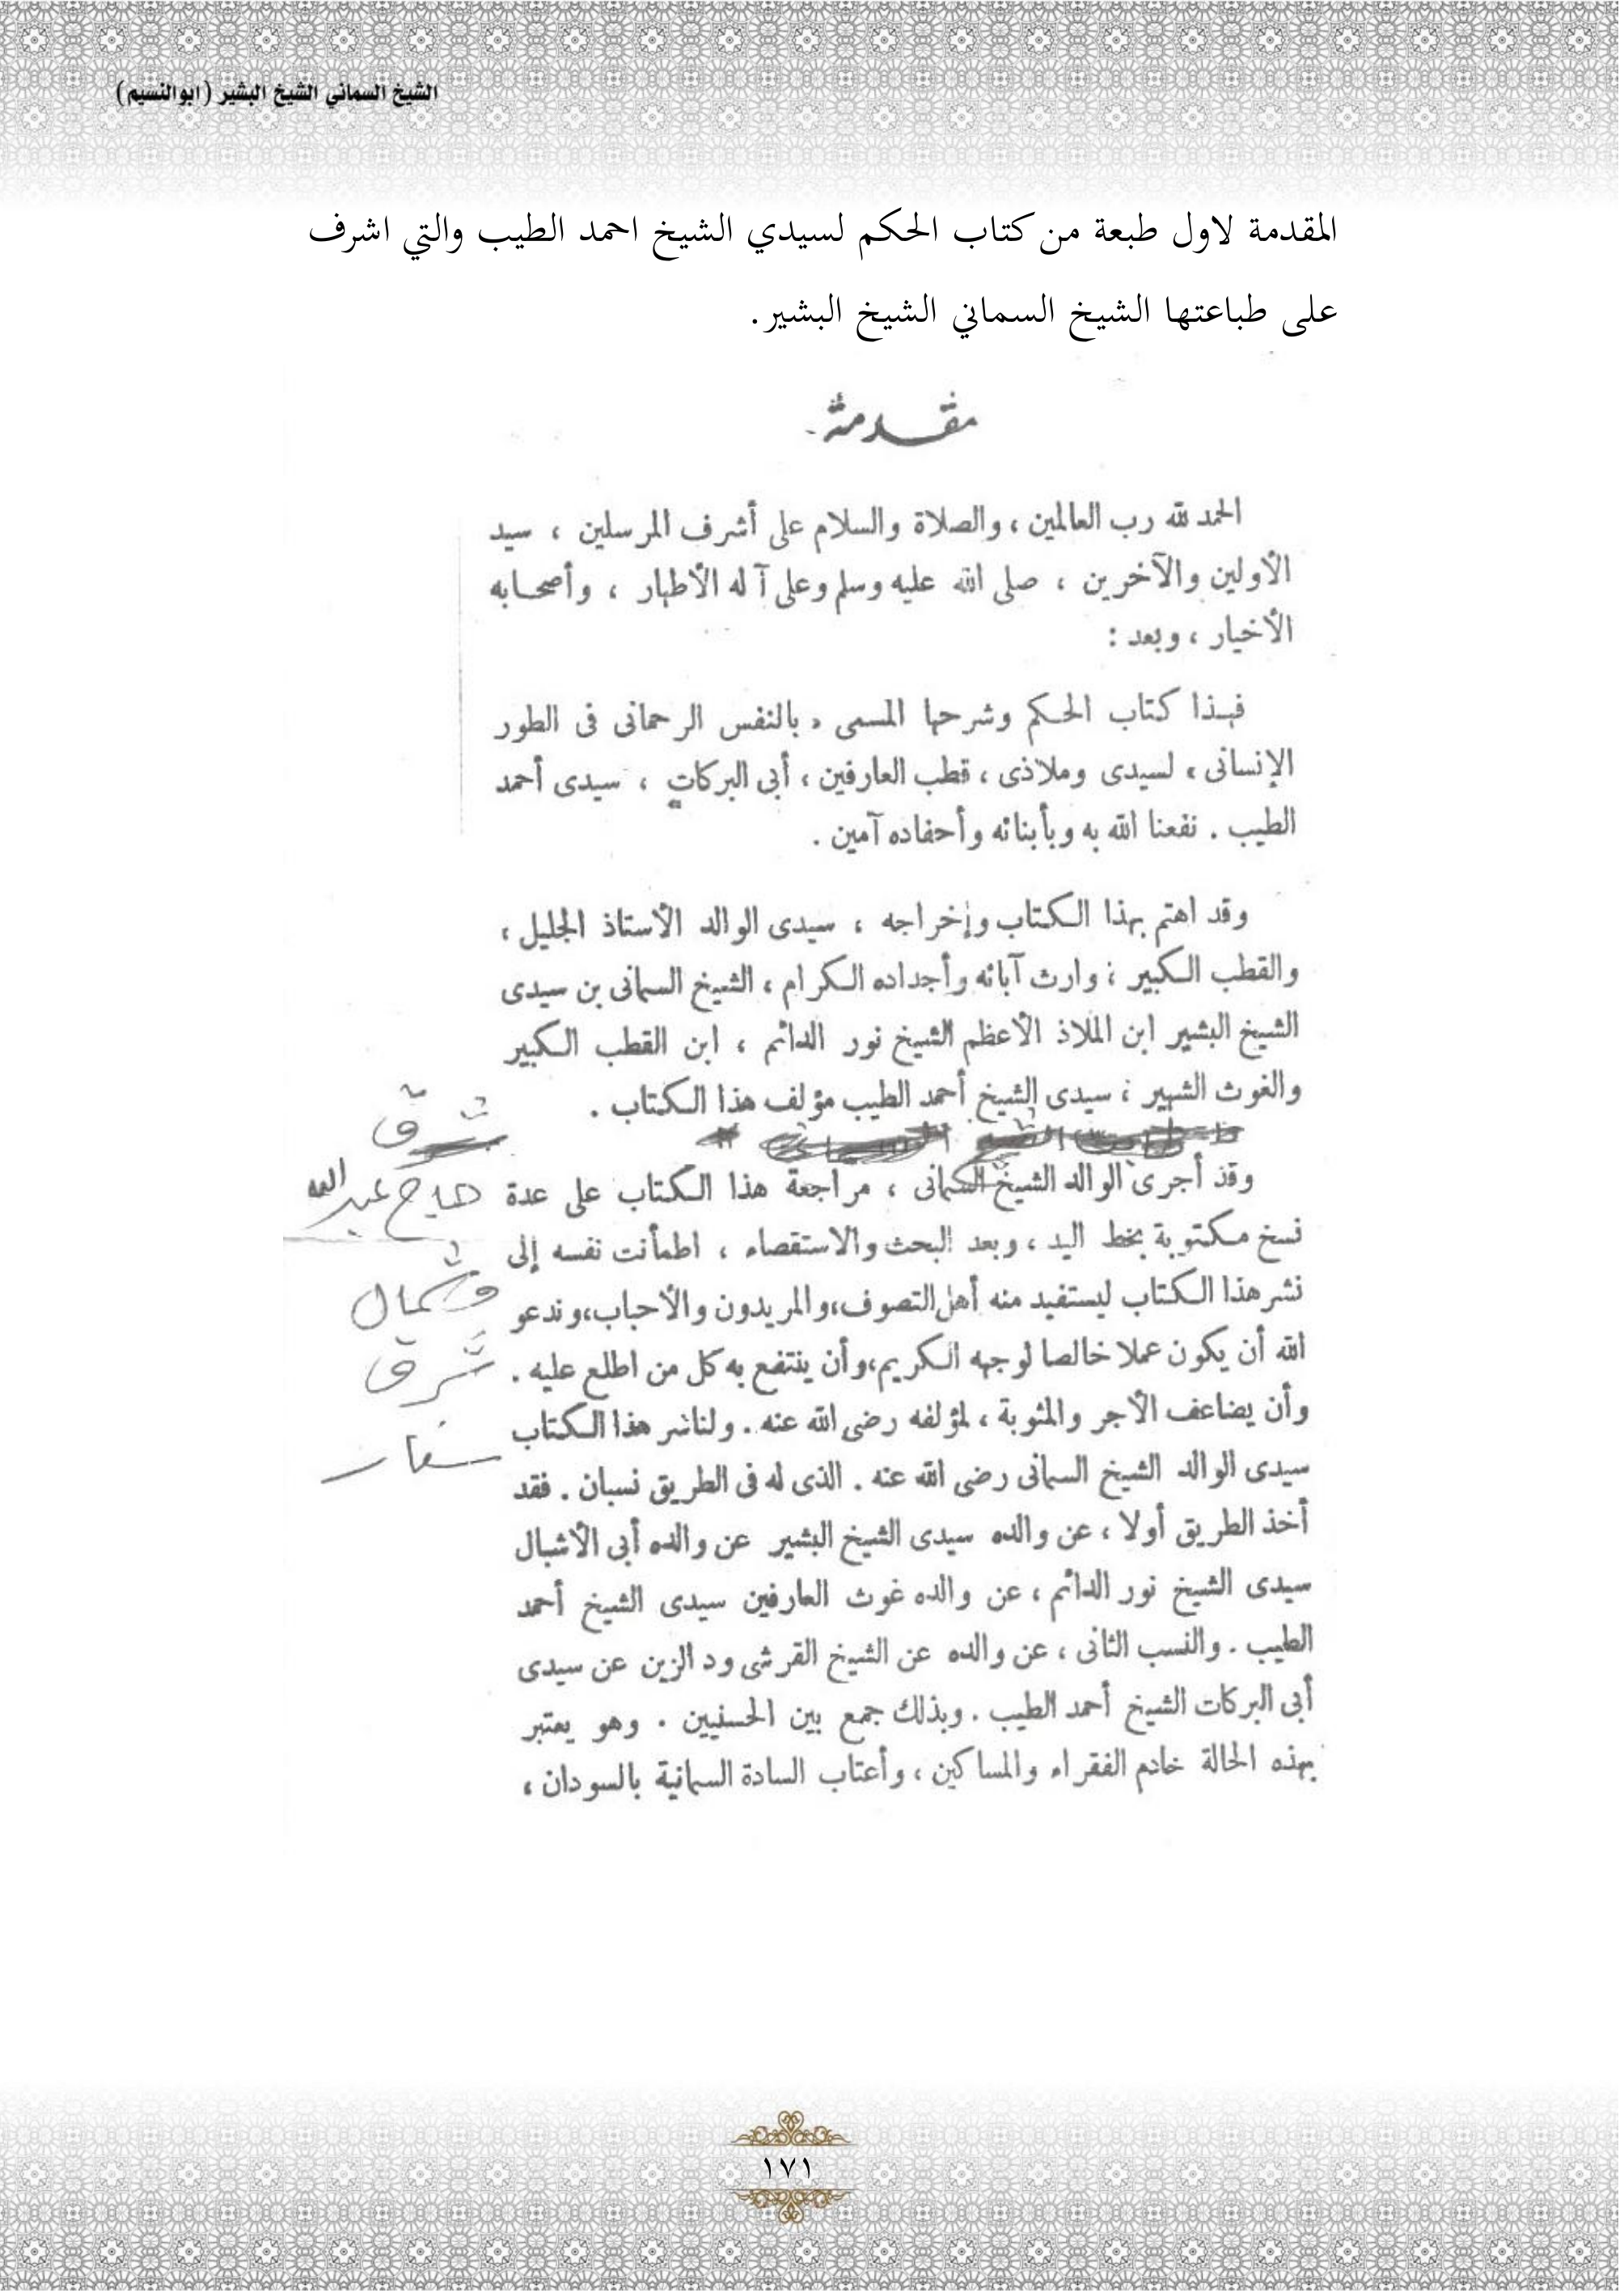 الشيخ السماني الشيخ البشير (ابوالنسيم)
المقدمة لاول طبعة من كتاب الحكم لسيدي الشيخ احمد الطيب والتي اشرف
على طباعتها الشيخ السماني الشيخ البشير.
مقدمة
الحمد لله رب العالمين ، والصلاة والسلام على أشرف المرسلين ، سيد
الأولين والآخرين ، صلى الله عليه وسلم وعلى آله الأطهار ، وأصحابه
الأخيار ، وبعد :
فهذا كتاب الحكم وشرحها المسمى « بالنفس الرحمانى فى الطور
الإنسانى » لسيدى وملاذى ، قطب العارفين ، أبى البركات ، سيدى أحمد
الطيب . نفعنا الله به وبأبنائه وأحفاده آمين .
وقد اهتم بهذا الكتاب وإخراجه ، سيدى الوالد الأستاذ الجليل ،
والقطب الكبير ؛ وارث آبائه وأجداده الكرام ، الشيخ السمانى بن سيدى
الشيخ البشير ابن الملاذ الأعظم الشيخ نور الدائم ، ابن القطب الكبير
والغوث الشهير ؛ سيدى الشيخ أحمد الطيب مؤلف هذا الكتاب .
شرق
وقد أجرى الوالد الشيخ السمانى ، مراجعة هذا الكتاب على عدة
حاج عبد الله
نسخ مكتوبة بخط اليد ، وبعد البحث والاستقصاء ، اطمأنت نفسه إلى
نشر هذا الكتاب ليستفيد منه أهل التصوف،والمريدون والأحباب،وندعو
وشمال
الله أن يكون عملا خالصا لوجهه الكريم،وأن ينتفع به كل من اطلع عليه .
شرق
وأن يضاعف الأجر والمثوبة ، لمؤلفه رضى الله عنه . ولناشر هذا الكتاب
سنار
سيدى الوالد الشيخ السمانى رضى الله عنه . الذى له فى الطريق نسبان . فقد
أخذ الطريق أولا ، عن والده سيدى الشيخ البشير عن والده أبى الأشبال
سيدى الشيخ نور الدائم ، عن والده غوث العارفين سيدى الشيخ أحمد
الطيب . والنسب الثانى ، عن والده عن الشيخ القرشى ود الزين عن سيدى
أبى البركات الشيخ أحمد الطيب . وبذلك جمع بين الحسنيين . وهو يعتبر
بهذه الحالة خادم الفقراء والمساكين ، وأعتاب السادة السمانية بالسودان ،
١٧١